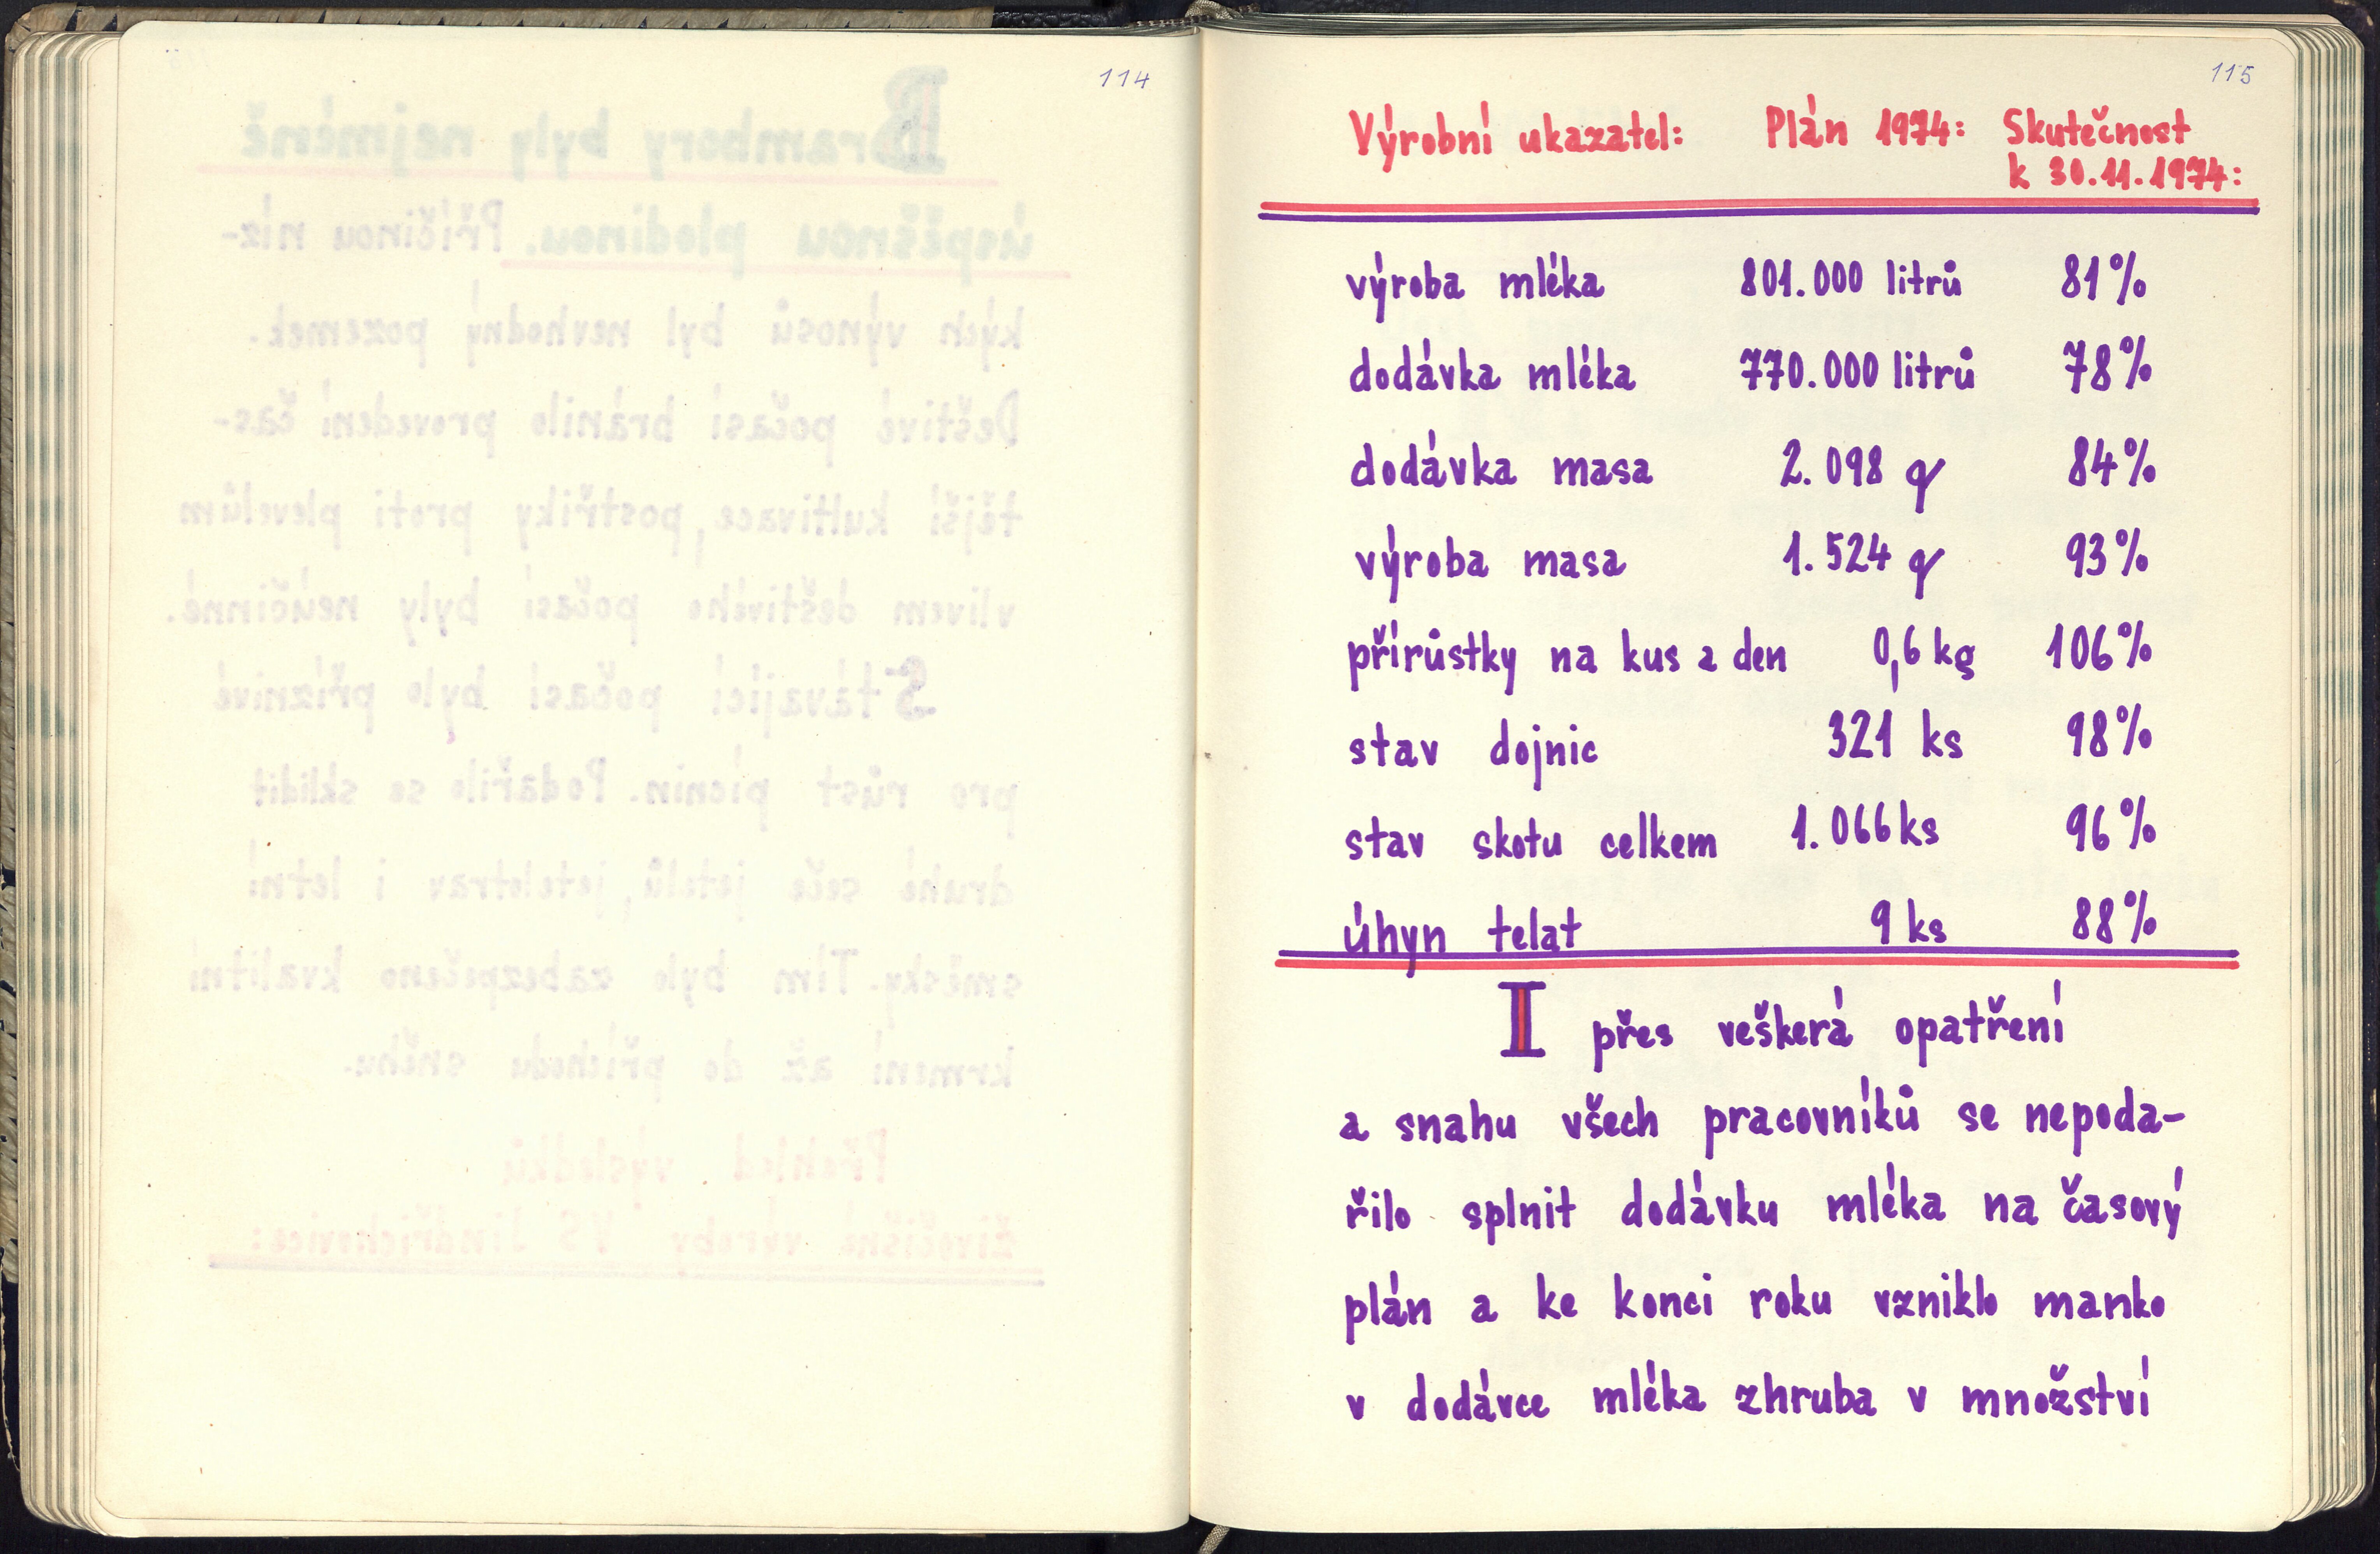 114
115
Výrobní ukazatel: Plán 1974: Skutečnost
k 30.11.1974:
výroba mléka 801.000 litrů 81%
dodávka mléka 770.000 litrů 78%
dodávka masa 2.098 q 84%
výroba masa 1.524 q 93%
přírůstky na kus a den 0,6 kg 106%
stav dojnic 321 ks 98%
stav skotu celkem 1.066 ks 96%
úhyn telat 9 ks 88%
I přes veškerá opatření
a snahu všech pracovníků se nepoda-
řilo splnit dodávku mléka na časový
plán a ke konci roku vzniklo manko
v dodávce mléka zhruba v množství